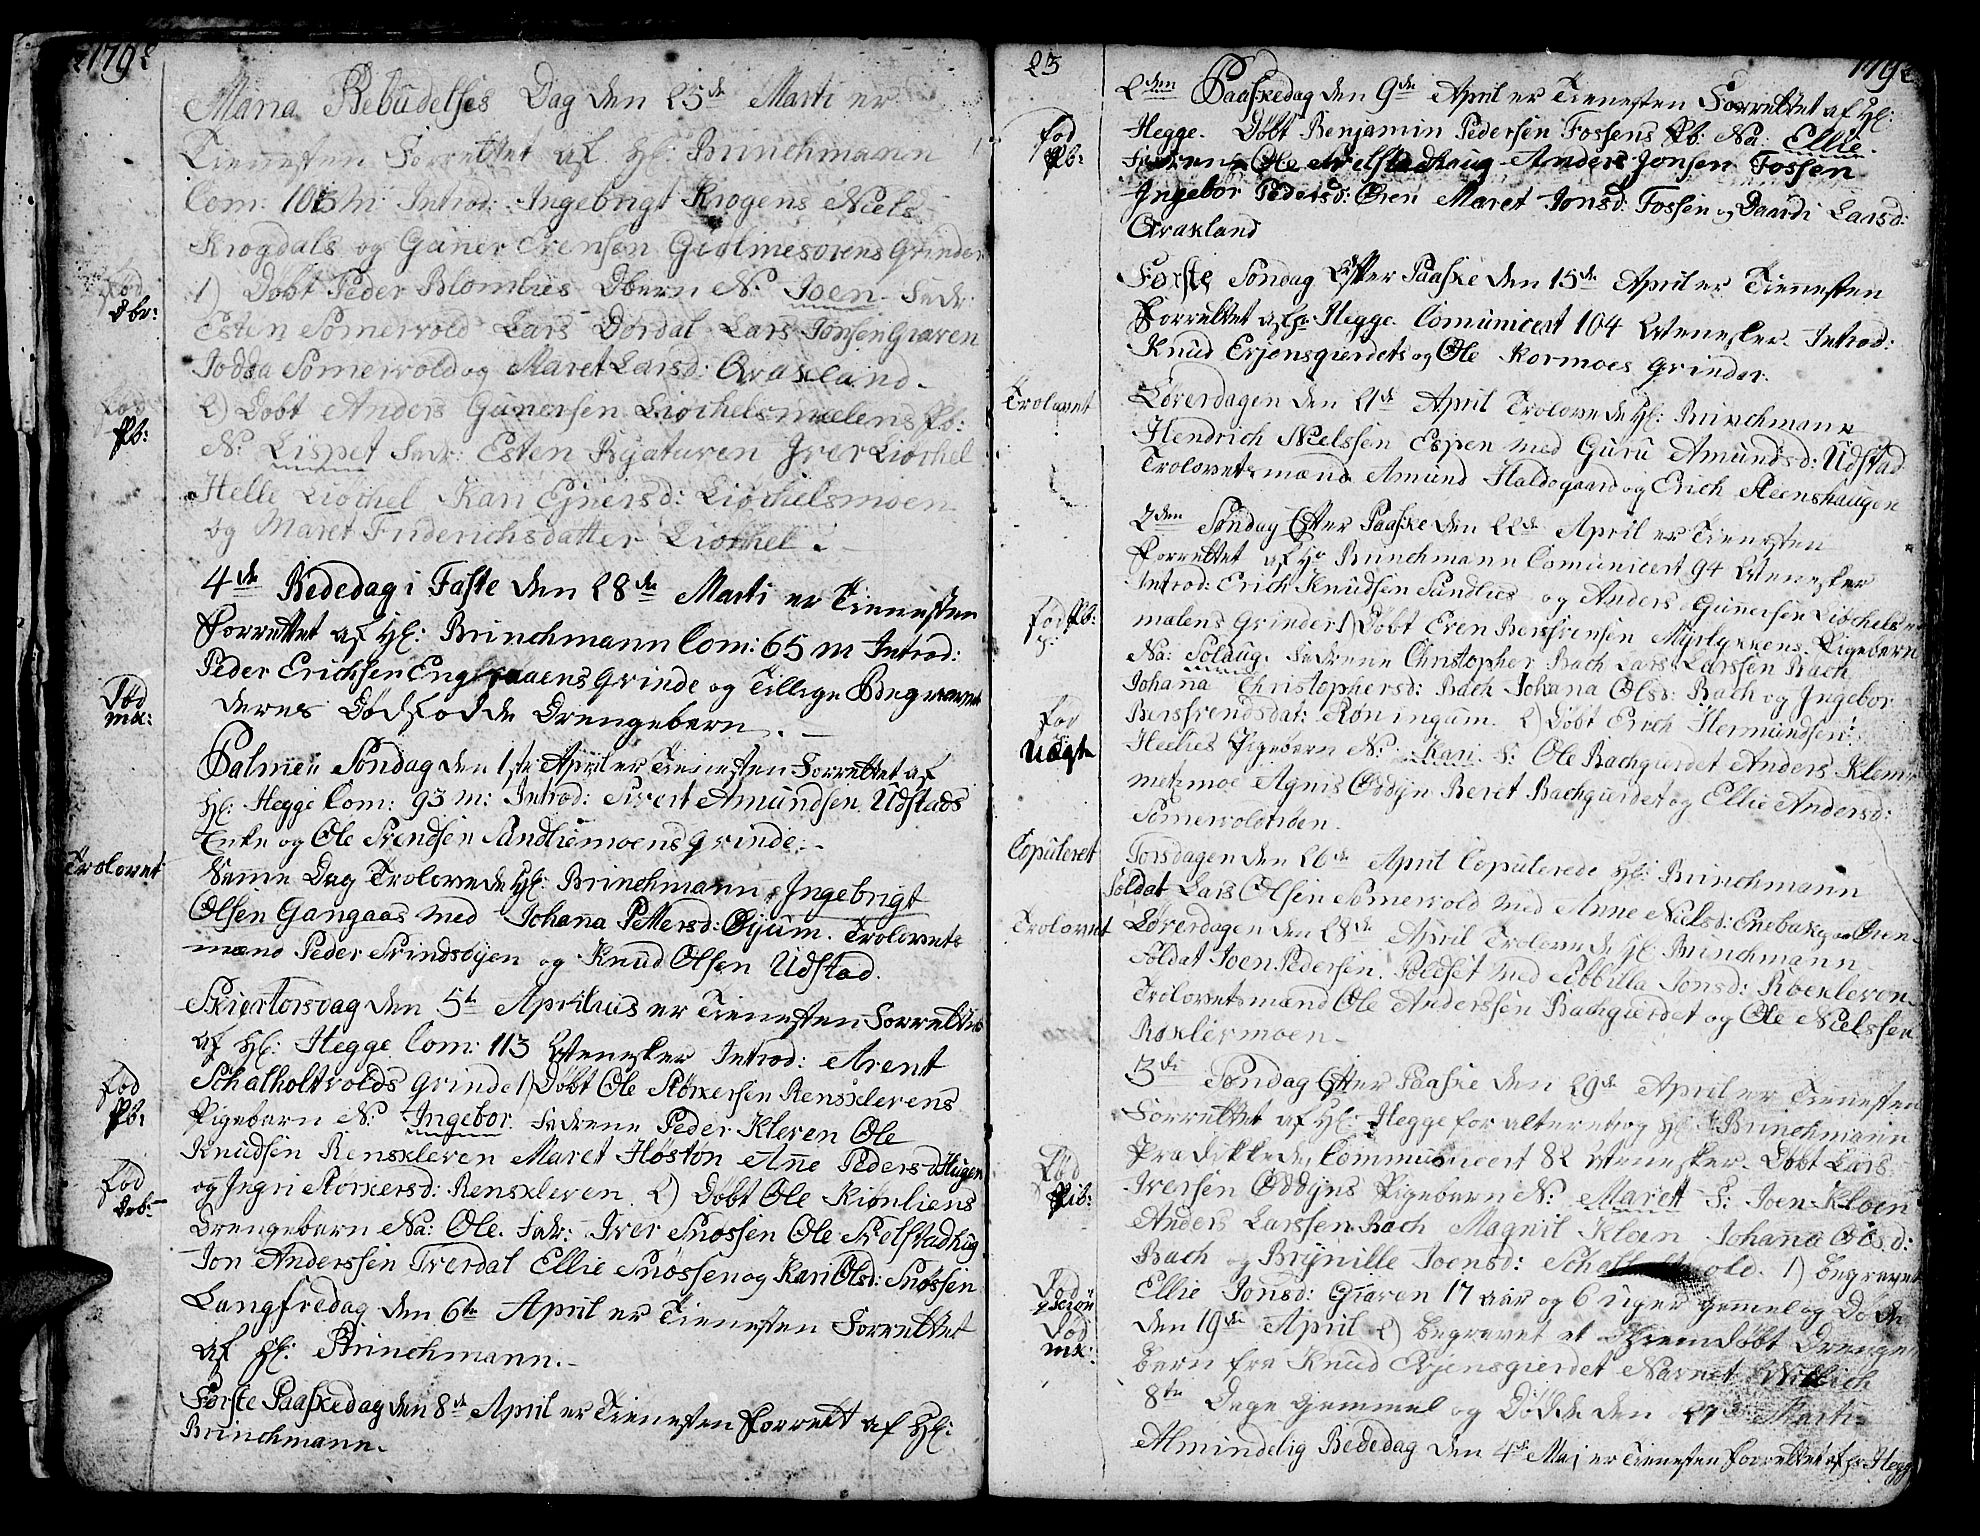 1792
Maria Bebudelses Dag den 25de Marti er
Tienesten Forrettet af Hr: Brinchmann
Com: 105 M: Introd: Ingebrigt Krogens Niels
Krogdals og Guner Erensen Giolmesøiens Grinder
1) Døbt Peder Blomlies Dbern N: Joen. Fadr:
Esten Somervold Lars Dørdal Lars Jonsen Graven
Joddaa Somervold og Maret Larsd: Qvakland.
2) Døbt Anders Gunersen Liøchelsmælens Pb:
N: Lispet Fadr: Esten Ryaturen Iver Liøchel
Helle Liøchel Kari Ejnersd: Liøchelsmoen
og Maret Friderichsdatter Liøchel.
4de Bededag i Faste den 28de Marti er Tienesten
Forrettet af Hr: Brinchmann Com: 65 m Introd:
Peder Erichsen Engeraaens Grinde og Tillige Begravet
deres Dødfødde Drengebern.
Palme Søndag den 1ste April er Tienesten Forrettet af
Hr: Hegge Com: 93 m: Introd: Sivert Amundsen Udstads
Enke og Ole Svendsen Sandliemoens Grinde.
Samme Dag Trolovede Hr: Brinchmann Ingebrigt
Olsen Gangaas med Johana Pettersd: Øyum. Trolovets
mænd Peder Svindsøyen og Knud Olsen Udstad.
Skiertorsdag den 5te Aprilius er Tienesten Forrettet
af Hr: Hegge Com: 113 Mennesker Introd: Arent
Schalholtvolds Grinde 1) Døbt Ole Størkersen Rensklevens
Pigebarn N: Ingebor. Fadrene Peder Kleven Ole
Knudsen Renskleven Maret Høston Ane Pedersd Haugen
og Ingri Størkersd: Renskleven. 2) Døbt Ole Kiønliens
Drengebarn Na: Ole. Fadr: Iver Snøssen Ole Skelstadhaug
Jon Anderssen Tverdal Ellie Snøssen og Kari Olsd: Snøssen
Langfredag den 6te April er Tienesten Forrettet
af Hr: Brinchmann.
Første Paaskedag den 8de April er Tienesten Forrett af Hr:
Brinchmann.
fød
dbr:
fød
Pb:
død
mk:
Trolovet
fød
Pb:
fød
Drb:
23
1792
2den Paaskedag den 9de April er Tienesten Forrettet af Hr:
Hegge. Døbt Benjamin Pedersen Fossens Pb: Na: Ellie.
Fadrene Ole Skelstadhaug Anders Jonsen Fossen
Ingebor Pedersd: Øren Maret Jonsd: Fossen og Daardi Larsd:
Qvakland
Første Søndag Efter Paaske den 15de April er Tienesten
Forrettet af Hr Hegge. Comunicert 104 Mennesker. Introd:
Knud Evjensgierdets og Ole Kormoes Grinder.
Løverdagen den 21de April Trolovede Hr: Brinchmann
Hendrich Nielssen Espen med Guru Amundsd: Udstad
Trolovetsmænd Amund Haldogaard og Erich Steenshaugen
2den Søndag Efter Paaske den 22de April er Tienesten
Forrettet af Hr Brinchmann Comunicert 94 Mennesker
Introd: Erich Knudsen Sundlies og Anders Gunersen Liøchels
mælens Grinder 1) Døbt Even Bersvensen Myrlykkens Pigebarn
Na: Solaug. Fadrene Christopher Bach Lars Larssen Bach
Johana Christophersd: Bach Johana Olsd: Bach og Ingebor
Bersvendsdat: Røningum. 2) Døbt Erich Hermundsen
Heelies Pigebarn N: Kari. F: Ole Bachgierdet Anders Klem
metzmoe Agnis Oddyn Beret Bachgierdet og Ellie Andersd:
Somervoldmoen.
Torsdagen den 26de April Copulerede Hr: Brinchmann
Soldat Lars Olsen Somervold med Anne Nielsd: Enebak paa Øren
Løverdagen den 28de April Trolovede Hr: Brinchmann
Soldat Joen Pedersen Solset med Sebbilla Jonsd: Roekleven
Trolovetsmænd Ole Anderssen Bachgierdet og Ole Nielssen
Røklevmoen.
3de Søndag Efter Paaske den 29de April er Tienesten
Forrettet af Hr: Hegge for alteret og Hr: Brinchmann
Prædikkede, Communicert 82 Mennesker. Døbt Lars
Iversen Oddyns Pigebarn N: Marett F: Joen Kloen
Anders Larssen Bach Magnil Kloen Johana Olsd:
Bach og Brynille Joensd: Schalholtvold. 1) Begravet
Ellie Jonsd: Graven 17 aar og 6 uger gamel og Døde
den 19de April 2) begravet et Hiemdøbt Drenge
barn fra Knud Evjensgierdet Navnet Nillrich
8te Dage gammel og Døde den 27de Marti
Almindelig Bededag den 4de Maj er Tienesten Forrettet af Hr Hegge
fød
Pb:
Trolovet
fød Pb:
fød
Uægte
Copuleret
Trolovet
fød
Pib:
død
qvkiøn
død
mk: